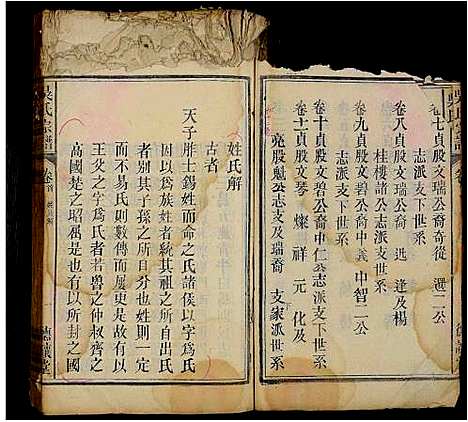 吳氏宗譜
卷七貞股文瑞公裔奇從 選二公
志派下世系
卷八貞股文瑞公裔 迅 達及楊
桂樓諸公志派支世系
卷九貞股文碧公裔中義 中智二公
志派支下世系
卷十貞股文碧公裔中仁公志派支下世系
卷十一貞股文琴 燦 祥 元 化及
亮股賦公志支及瑞裔 支家派世系
姓氏解
古者
天子胙土錫姓而命之氏諸侯以字爲氏
因以爲族姓者統其祖之所自出氏
者别其子孫之所自分也姓則一定
而不易氏則數傳而屢更是故有以
王父之字爲氏者若魯之仲叔齊之
高國楚之昭屈是也有以所封之國
吳氏宗譜
卷首
姓氏解
德讓堂